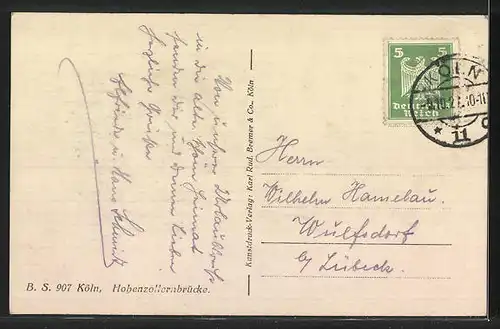 Von unserer Urlaubsreise
in die alte, schöne Heimat
senden dir und deinen Lieben
herzliche Grüsse
u. Hans Schmidt
B. S. 907 Köln, Hohenzollernbrücke.
Kunstdruck-Verlag: Karl Rud. Bremer & Co., Köln
5 5
Deutsches
Reich
KÖLN
11
Herrn
Wilhelm Hamelau.
Wulfsdorf
b/ Lübeck.